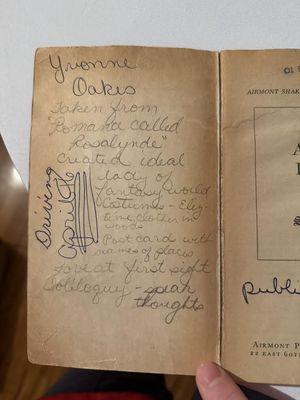 Yvonne
Oakes
Taken from
"Romana called
Rosalynde"
Created ideal
lady of
fantasy world
Costumes - Eliz-
time, clothes in
woods
Post card with
names of places
Love at first sight
Soliloquy - speak
thoughts
Driving
April 26
AIRMONT SHAK
A
S
publi
AIRMONT P
22 EAST 60TH